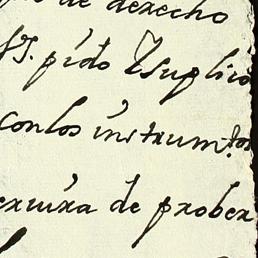 de derecho
pido Y suplico
con los instrum.tos
de prober